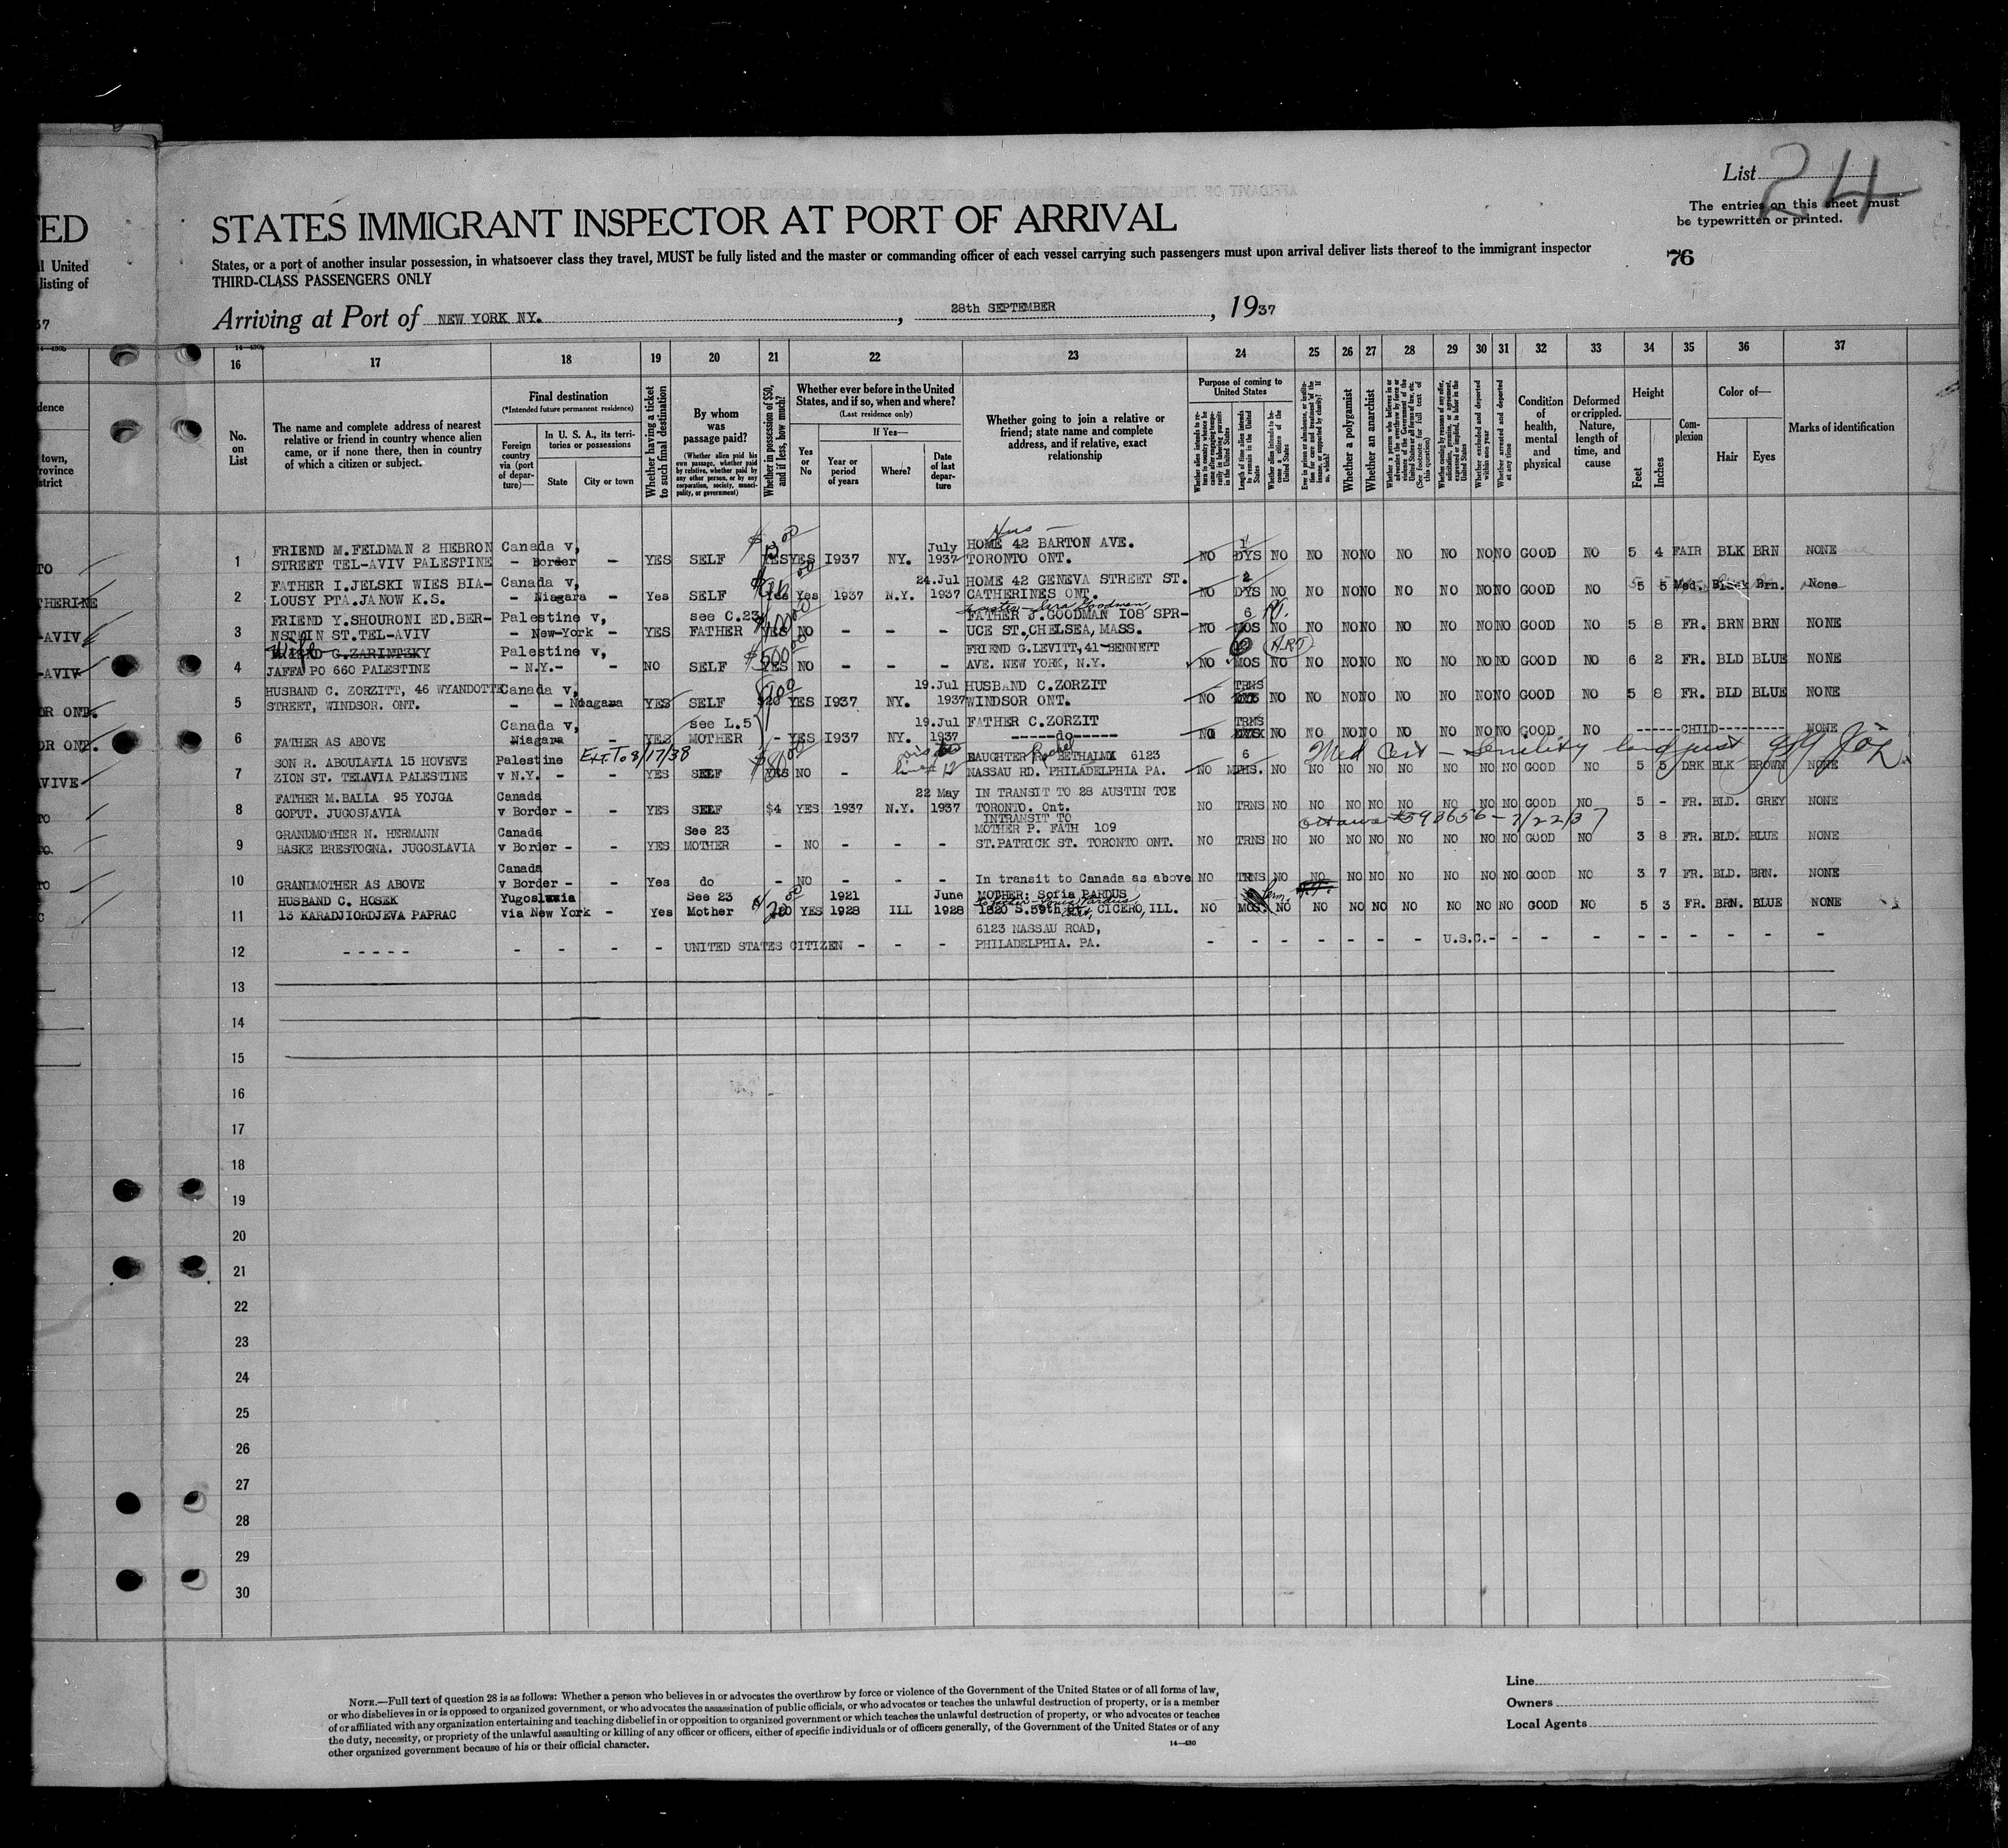 List 24
The entries on this sheet must
be typewritten or printed.
76
TED
STATES IMMIGRANT INSPECTOR AT PORT OF ARRIVAL
l United
listing of
States, or a port of another insular possession, in whatsoever class they travel, MUST be fully listed and the master or commanding officer of each vessel carrying such passengers must upon arrival deliver lists thereof to the immigrant inspector
THIRD-CLASS PASSENGERS ONLY
37
Arriving at Port of NEW YORK NY. , 28th SEPTEMBER , 1937
14—430b
16 17 18 19 20 21 22 23 24 25 26 27 28 29 30 31 32 33 34 35 36 37
No. on List
The name and complete address of nearest
relative or friend in country whence alien
came, or if none there, then in country
of which a citizen or subject.
Final destination
(*Intended future permanent residence)
Foreign country via (port of departure)—
In U. S. A., its territories or possessions
State City or town
Whether having a ticket to such final destination
By whom was passage paid?
(Whether alien paid his own passage, whether paid by relative, whether paid by any other person, or by any corporation, society, municipality, or government)
Whether in possession of $50, and if less, how much?
Whether ever before in the United States, and if so, when and where?
(Last residence only)
Yes or No
If Yes—
Year or period of years
Where?
Date of last departure
Whether going to join a relative or
friend; state name and complete
address, and if relative, exact
relationship
Purpose of coming to United States
Whether alien intends to return to country whence he came after engaging temporarily in laboring pursuits in the United States
Length of time alien intends to remain in the United States
Whether alien intends to become a citizen of the United States
Ever in prison or almshouse, or institution for care and treatment of the insane, or supported by charity? If so, which?
Whether a polygamist
Whether an anarchist
Whether excluded and deported within one year
Whether arrested and deported at any time
Condition of health, mental and physical
Deformed or crippled. Nature, length of time, and cause
Height
Feet Inches
Complexion
Color of—
Hair Eyes
Marks of identification
1 FRIEND M.FELDMAN 2 HEBRON STREET TEL-AVIV PALESTINE Canada v, - Border - YES SELF YES YES I937 NY. July 1937 HOME 42 BARTON AVE. TORONTO ONT. NO 1 DYS NO NO NO NO NO NO NO NO GOOD NO 5 4 FAIR BLK BRN NONE
2 FATHER I.JELSKI WIES BIA- LOUSY PTA.JANOW K.S. Canada v, - Niagara - Yes SELF Yes Yes 1937 N.Y. 24.Jul 1937 HOME 42 GENEVA STREET ST. CATHERINES ONT. NO 2 DYS NO NO NO NO NO NO NO NO GOOD NO 5 5 Med. Black Brn. None
3 FRIEND Y.SHOURONI ED.BER- NSTAIN ST.TEL-AVIV Palestine v, - New-York - YES see C.23 FATHER YES NO - - - FATHER J.GOODMAN I08 SPR- UCE ST.CHELSEA, MASS. NO 6 MOS NO NO NO NO NO NO NO NO GOOD NO 5 8 FR. BRN BRN NONE
4 Wife G.ZARINTZKY JAFFA PO 660 PALESTINE Palestine v, - N.Y.- - NO SELF $500 YES NO - - - FRIEND G.LEVITT,41-BENNETT AVE. NEW YORK, N.Y. NO 6 MOS NO NO NO NO NO NO NO NO GOOD NO 6 2 FR. BLD BLUE NONE
5 HUSBAND C. ZORZITT, 46 WYANDOTTE STREET, WINDSOR. ONT. Canada v, - - Niagara YES SELF $20 YES I937 NY. 19.Jul 1937 HUSBAND C.ZORZIT WINDSOR ONT. NO TRNS NO NO NO NO NO NO NO NO GOOD NO 5 8 FR. BLD BLUE NONE
6 FATHER AS ABOVE Canada v, Niagara - YES see L.5 MOTHER - YES I937 NY. 19.Jul 1937 FATHER C.ZORZIT ------do------ NO TRNS NO NO NO NO NO NO NO NO GOOD NO ------CHILD-------- NONE
7 SON R. ABOULAFIA 15 HOVEVE ZION ST. TELAVIA PALESTINE Palestine v N.Y. - Ext. To 3/17/38 - YES SELF YES NO - line 12 DAUGHTER Rachel BETHALMX 6123 NASSAU RD. PHILADELPHIA PA. NO 6 MHS. NO NO NO NO NO NO NO NO GOOD NO 5 5 DRK BLK BROWN NONE
Med Cert - senility
8 FATHER M.BALLA 95 YOJGA GOPUT. JUGOSLAVIA Canada v Border - - YES SELF $4 YES 1937 N.Y. 22 May 1937 IN TRANSIT TO 28 AUSTIN TCE TORONTO. Ont. NO TRNS NO NO NO NO NO NO NO NO GOOD NO 5 - FR. BLD. GREY NONE
9 GRANDMOTHER N. HERMANN BASKE BRESTOGNA. JUGOSLAVIA Canada v Border - - YES See 23 MOTHER - NO - - - INTRANSIT TO MOTHER P. FATH 109 ST.PATRICK ST. TORONTO ONT. NO TRNS NO NO NO NO NO NO NO NO GOOD NO 3 8 FR. BLD. BLUE NONE
10 GRANDMOTHER AS ABOVE Canada v Border - - Yes do - NO - - - In transit to Canada as above NO TRNS NO NO NO NO NO NO NO NO GOOD NO 3 7 FR. BLD. BRN. NONE
11 HUSBAND C. HOSEK 13 KARADJIORDJEVA PAPRAC Yugoslavia via New York - Yes See 23 Mother YES 1921 1928 ILL June 1928 MOTHER: Sofia PARDUS 1820 S.59th St, CICERO, ILL. NO MOS. NO NO NO NO NO NO NO NO GOOD NO 5 3 FR. BRN. BLUE NONE
12 - - - - - - - - - UNITED STATES CITIZEN - - - 6123 NASSAU ROAD, PHILADELPHIA. PA. - - - - - - - U.S.C.- - - - - - - - - -
13
14
15
16
17
18
19
20
21
22
23
24
25
26
27
28
29
30
NOTE.—Full text of question 28 is as follows: Whether a person who believes in or advocates the overthrow by force or violence of the Government of the United States or of all forms of law,
or who disbelieves in or is opposed to organized government, or who advocates the assassination of public officials, or who advocates or teaches the unlawful destruction of property, or is a member
of or affiliated with any organization entertaining and teaching disbelief in or opposition to organized government or which teaches the unlawful destruction of property, or who advocates or teaches
the duty, necessity, or propriety of the unlawful assaulting or killing of any officer or officers, either of specific individuals or of officers generally, of the Government of the United States or of any
other organized government because of his or their official character.
14—430
Line
Owners
Local Agents